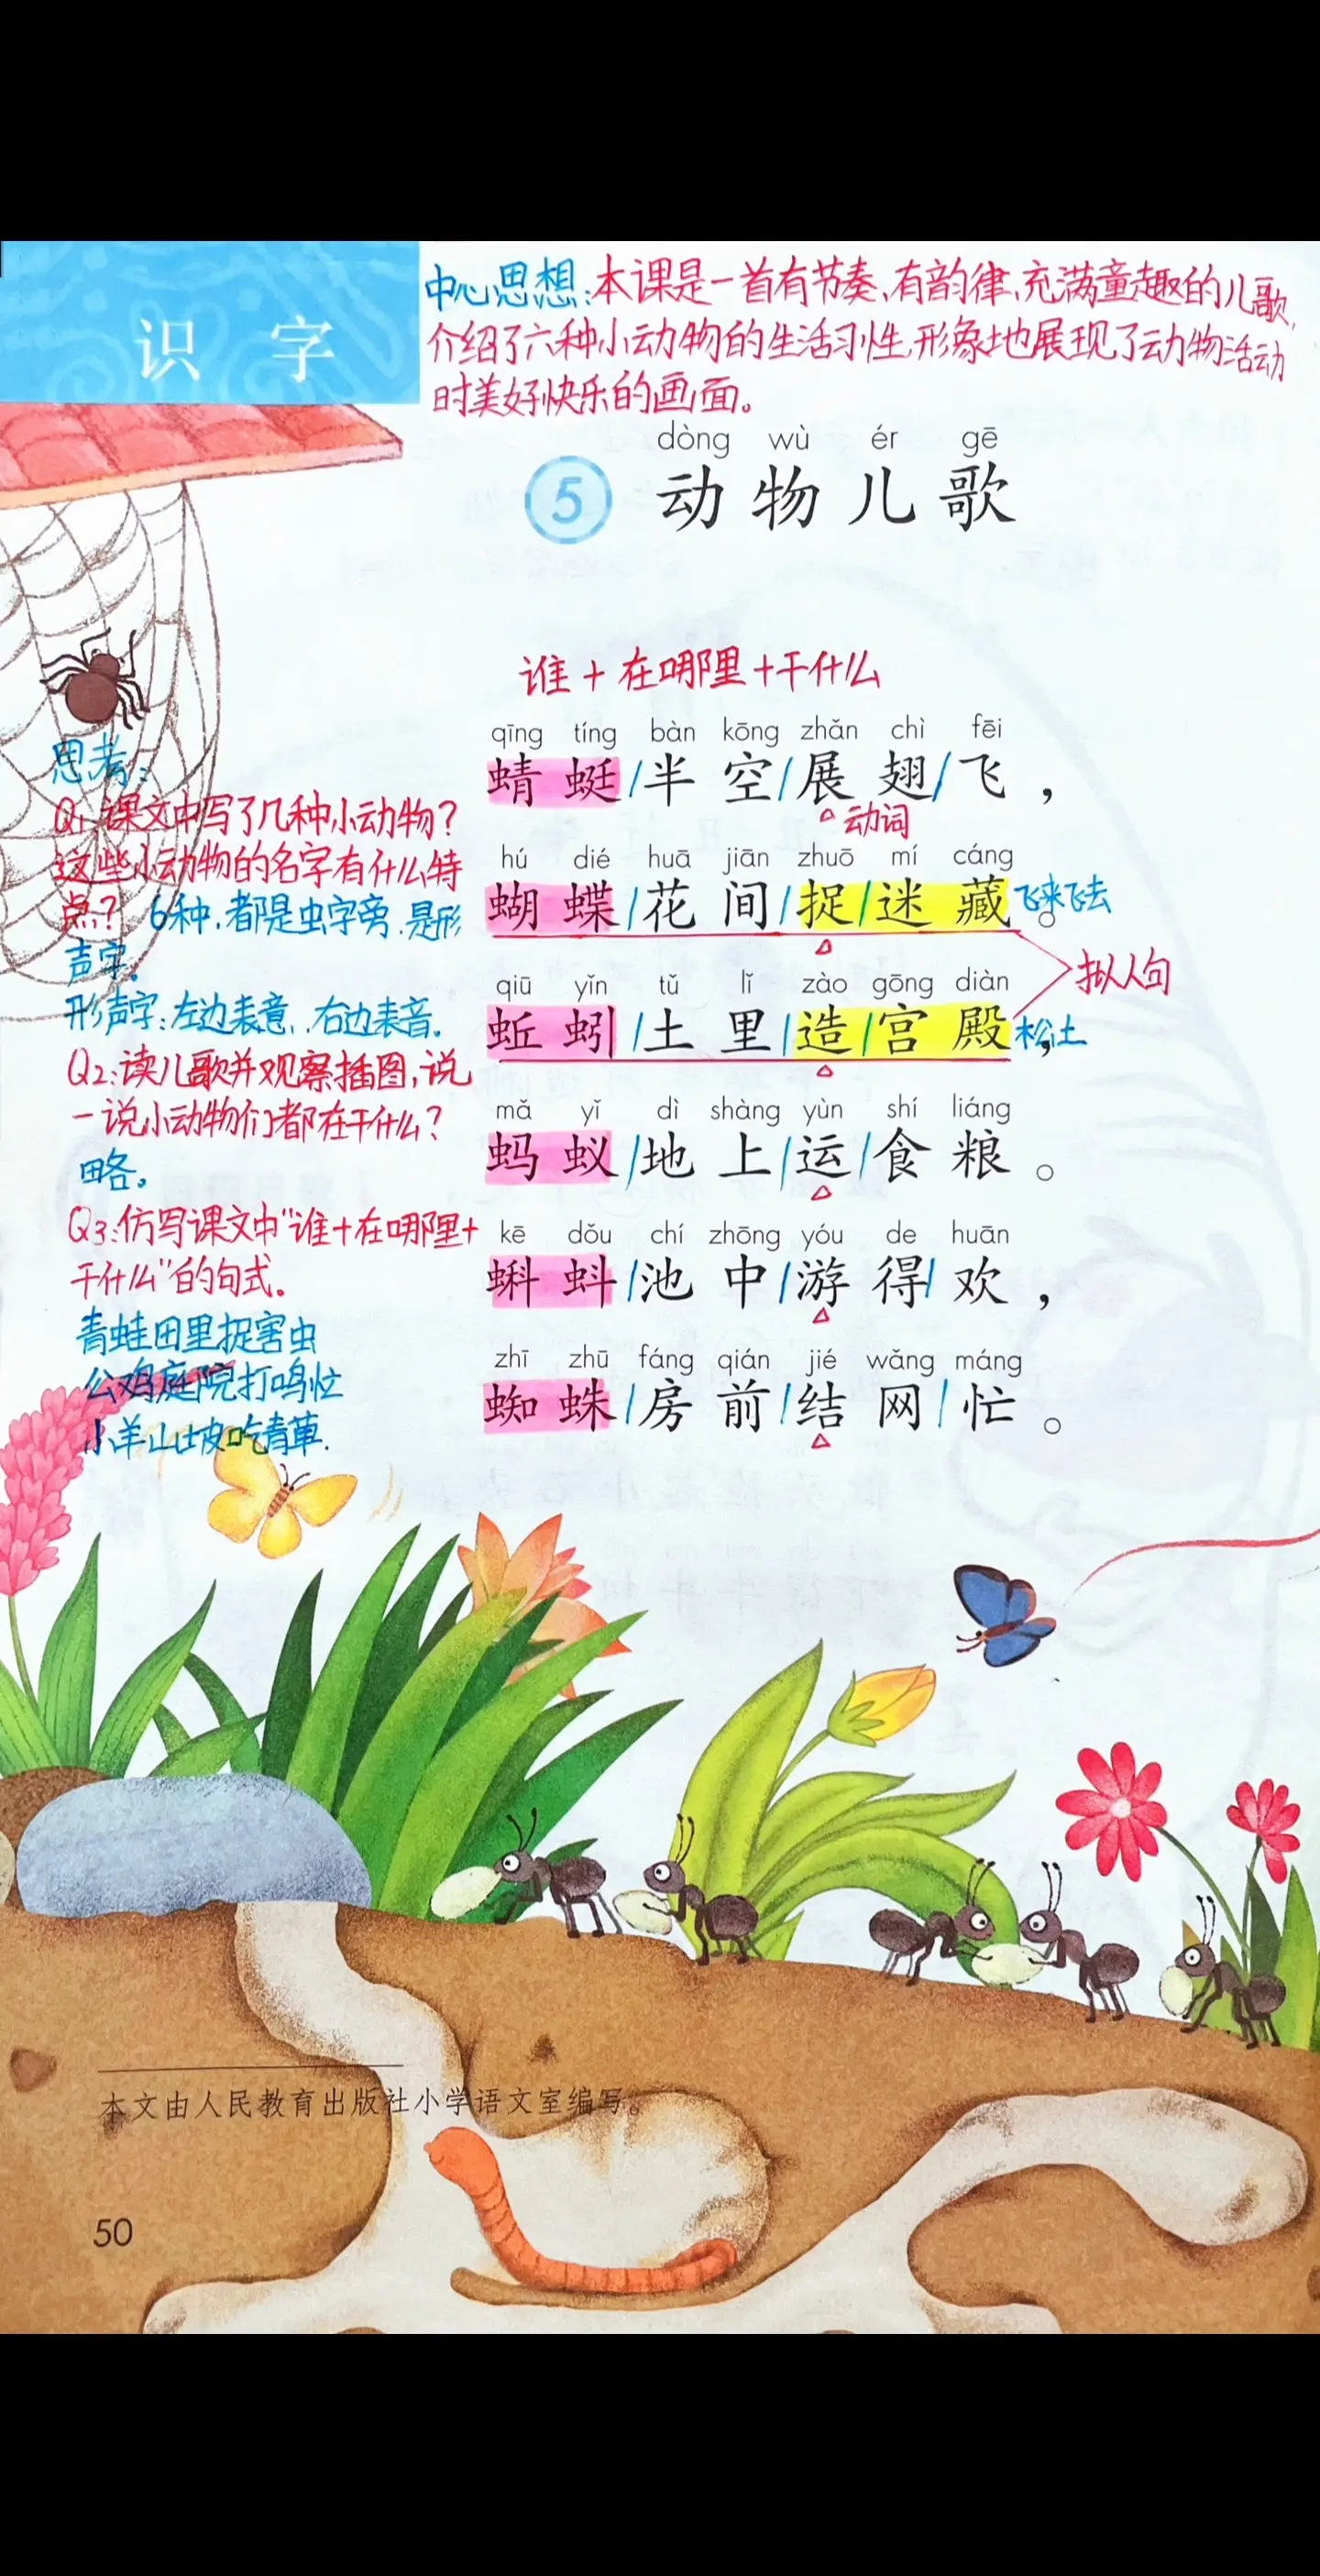 识字
中心思想：本课是一首有节奏、有韵律、充满童趣的儿歌，
介绍了六种小动物的生活习性，形象地展现了动物活动
时美好快乐的画面。
dòng wù ér gē
5 动物儿歌
谁+在哪里+干什么
qīng tíng bàn kōng zhǎn chì fēi
蜻蜓/半空/展翅/飞，
动词
hú dié huā jiān zhuō mí cáng
蝴蝶/花间/捉/迷藏。飞来飞去
qiū yǐn tǔ lǐ zào gōng diàn
蚯蚓/土里/造/宫殿，松土
拟人句
mǎ yǐ dì shàng yùn shí liáng
蚂蚁/地上/运/食粮。
kē dǒu chí zhōng yóu de huān
蝌蚪/池中/游得/欢，
zhī zhū fáng qián jié wǎng máng
蜘蛛/房前/结网/忙。
思考：
Q1:课文中写了几种小动物？
这些小动物的名字有什么特
点？6种，都是虫字旁，是形
声字。
形声字：左边表意，右边表音。
Q2:读儿歌并观察插图，说
一说小动物们都在干什么？
略。
Q3:仿写课文中“谁+在哪里+
干什么”的句式。
青蛙田里捉害虫
公鸡庭院打鸣忙
小羊山坡吃青草.
本文由人民教育出版社小学语文室编写。
50